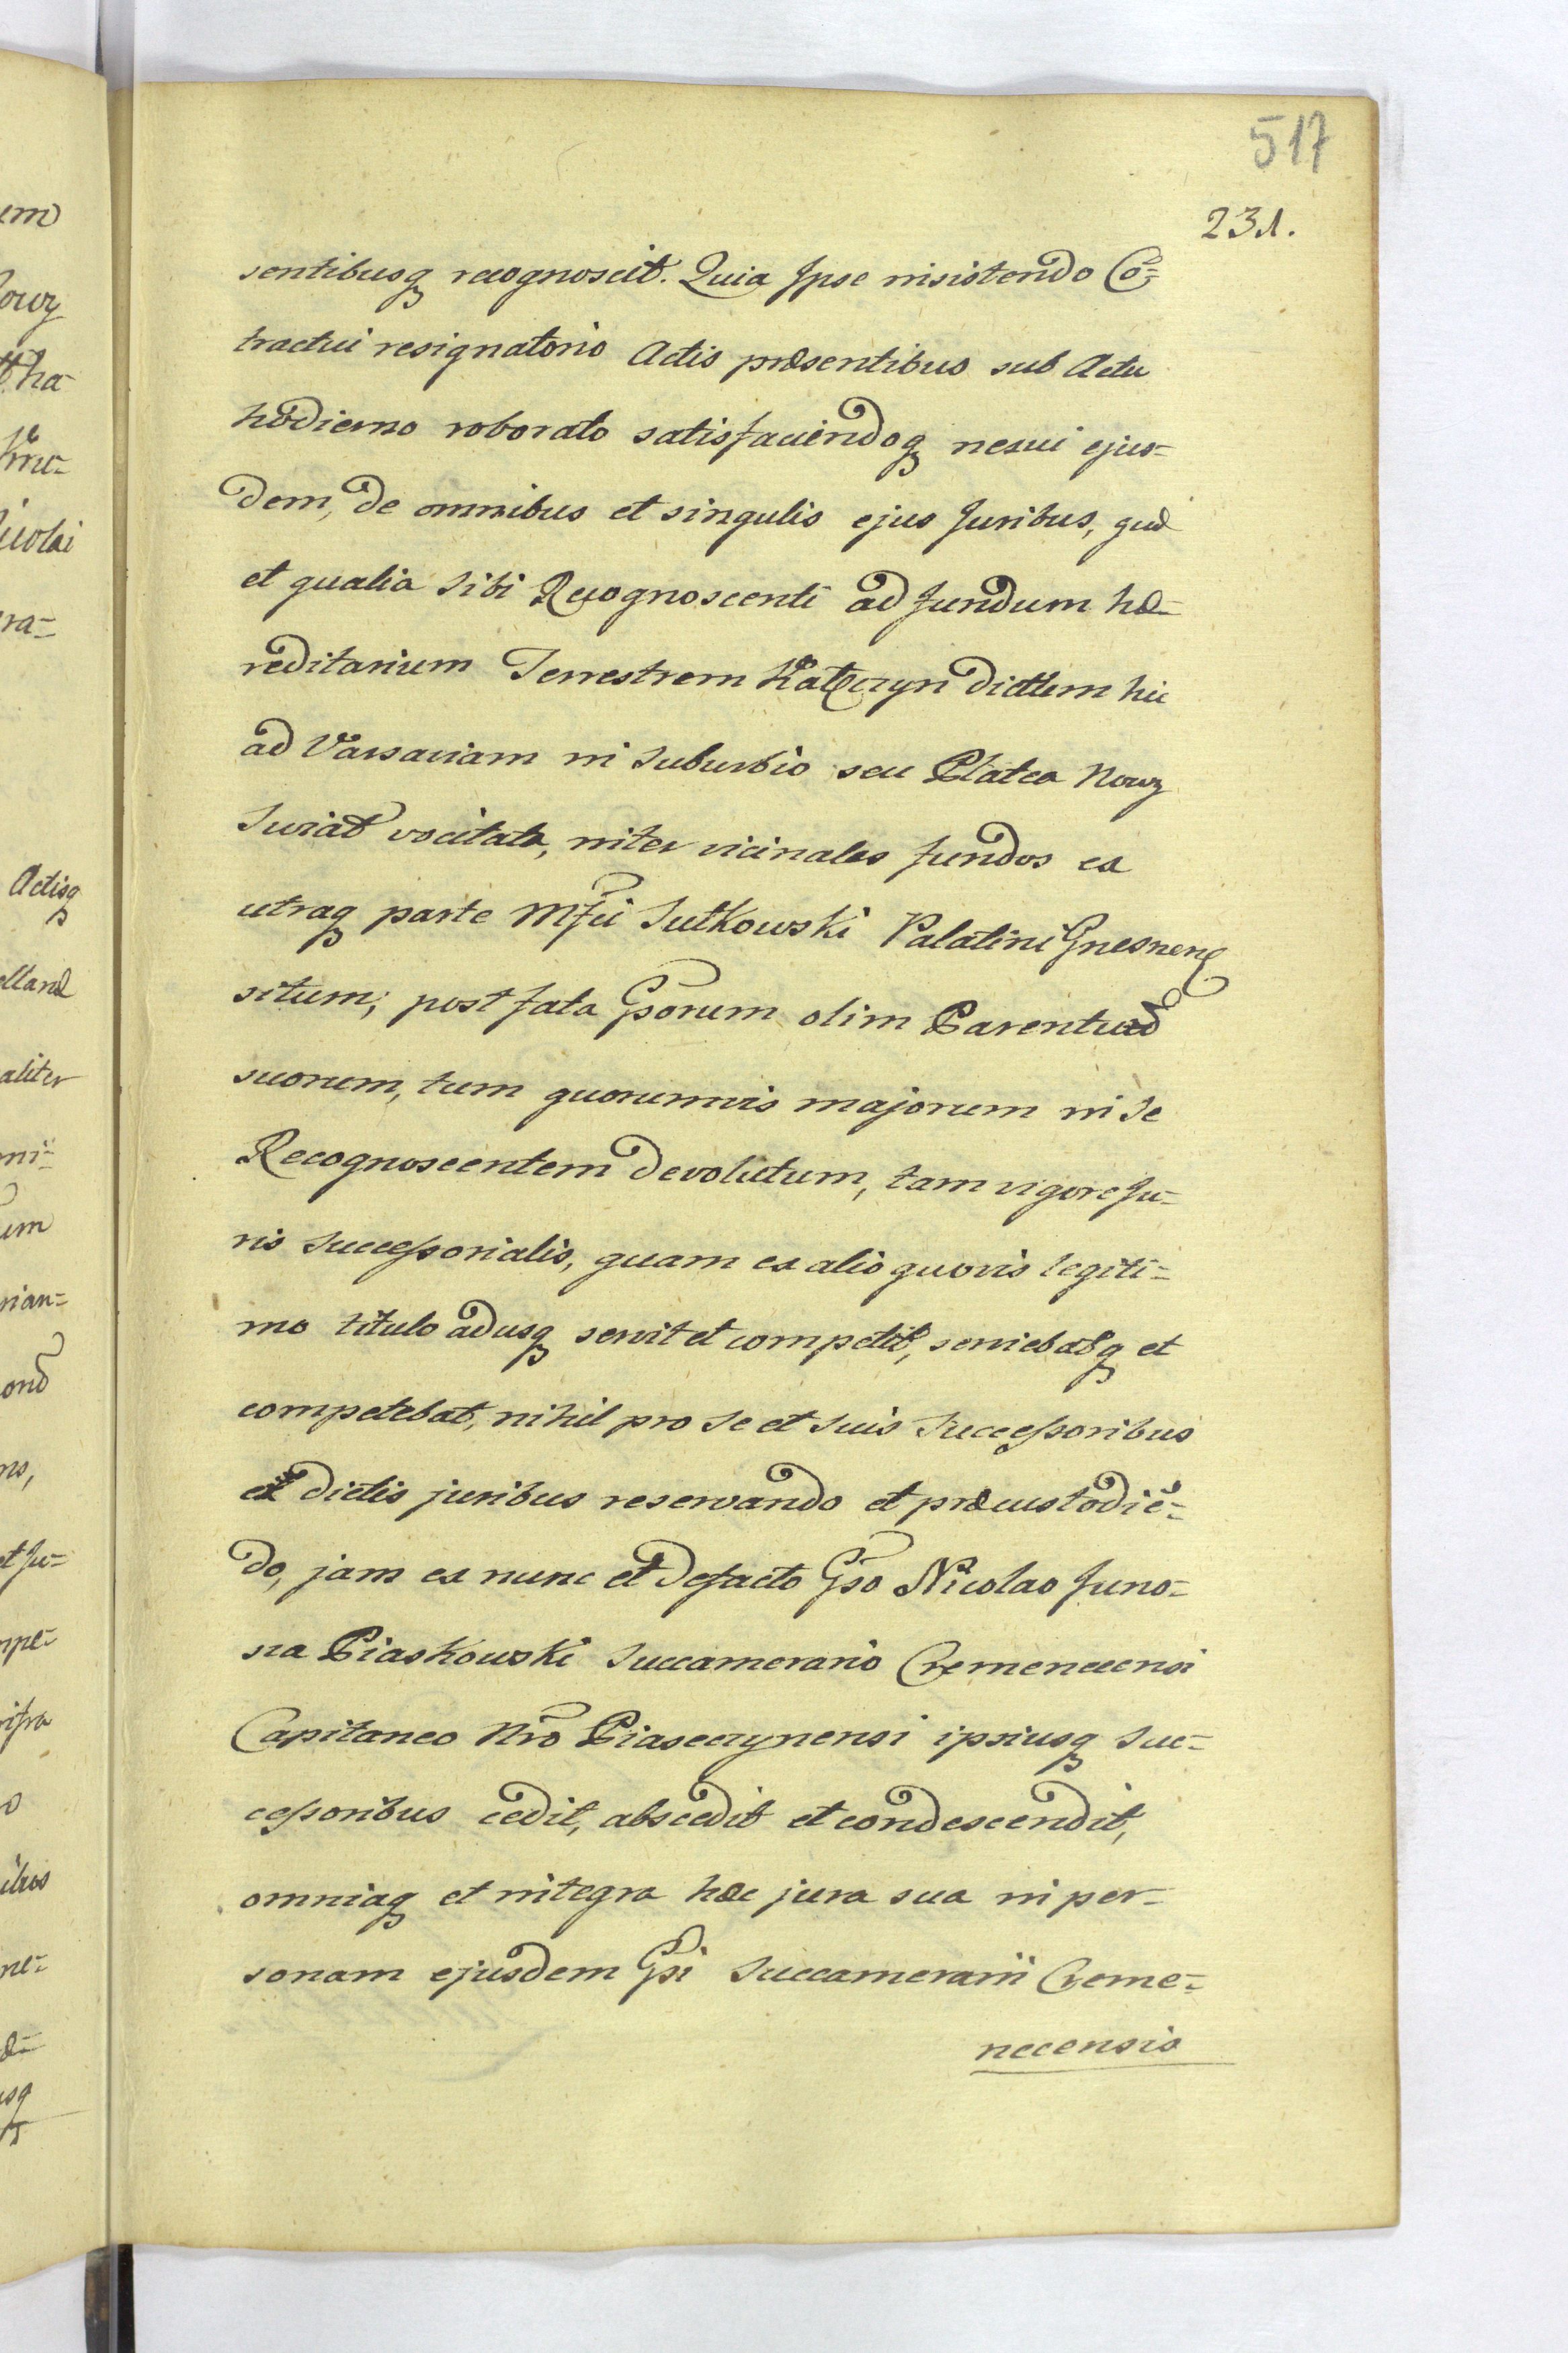 517
231.
sentibusq recognoscit. Quia Ipse insistendo Cō=
tractui resignatorio Actis præsentibus sub Actu
hodierno roborato satisfaciendoq nexui ejus=
dem, de omnibus et singulis ejus Juribus, quæ
et qualia Sibi Recognoscenti ad fundum hæ=
reditarium Terrestrem Kałęczyn dictum hic
ad Varsaviam in Suburbio seu Platea Nowy
Swiat vocitata, inter vicinales fundos ex
utraq parte Mfci Sułkowski Palatini Gnesnen
situm; post fata Gsorum olim Parentum
suorum, tum quorumvis majorum in Se
Recognoscentem devolutum, tam vigore Ju=
ris Successorialis, quam ex alio quovis legiti=
mo titulo adusq servit et competit, serviebatq et
competebat, nihil pro Se et Suis Successoribus
ex dictis juribus reservando et præcustodiē=
do, jam ex nunc et defacto Gso Nicolao Juno=
sza Piaskowski Succamerario Cremenecensi
Capitaneo Nro Piaseczynensi ipsiusq Suc=
cessoribus cedit, abscedit et condescendit,
omniaq et integra hæc jura sua in per=
sonam ejusdem Gsi Succamerarii Creme=
necensis
em
Nowy
Actisq
aliter
um